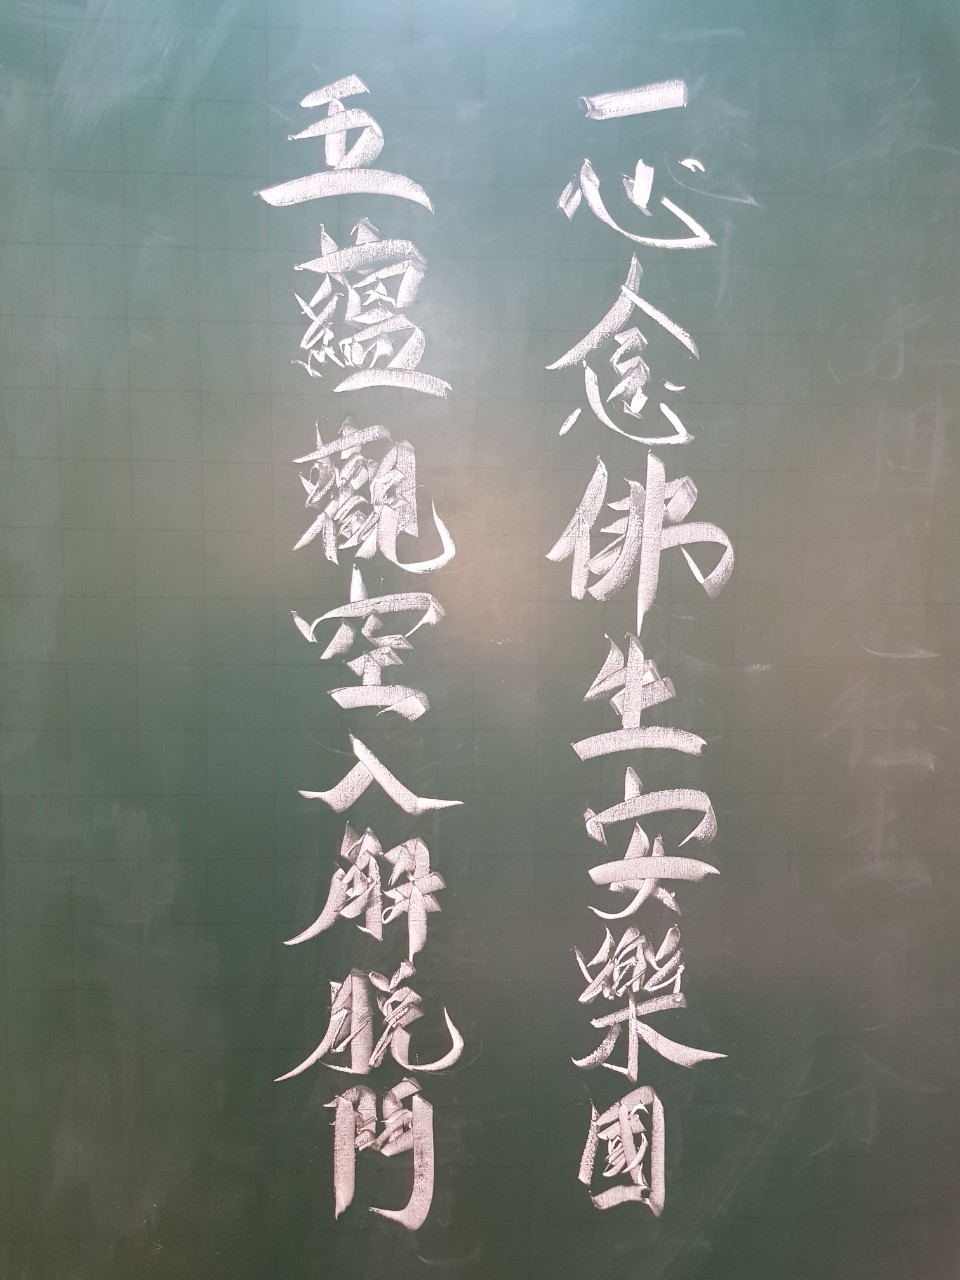 一心念佛生安樂國
五蘊觀空入解脫門